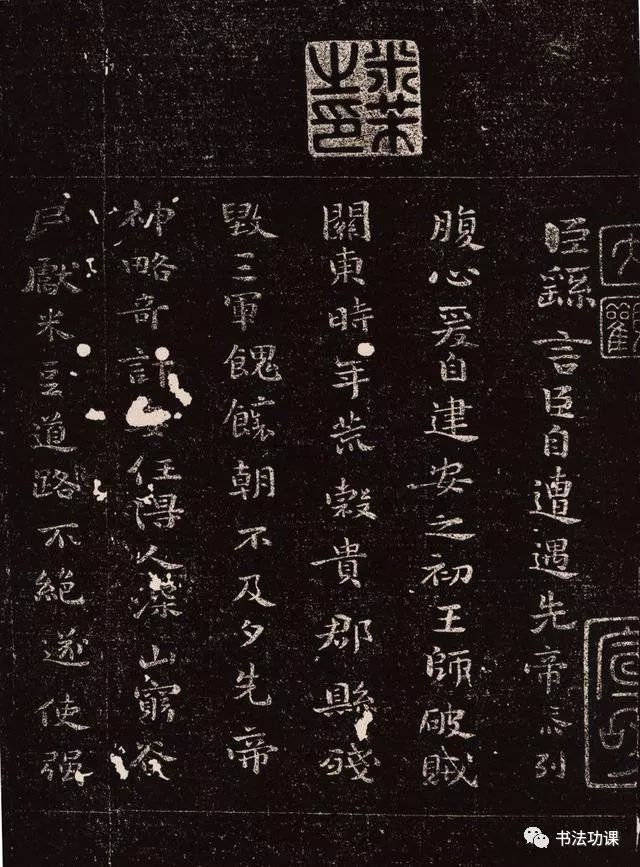 米芾之印
大觀
臣繇言臣自遭遇先帝忝列
腹心爰自建安之初王師破賊
關東時年荒穀貴郡縣殘
毀三軍餽饟朝不及夕先帝
神略奇計委任得人深山窮谷
民獻米豆道路不絕遂使强
书法功课